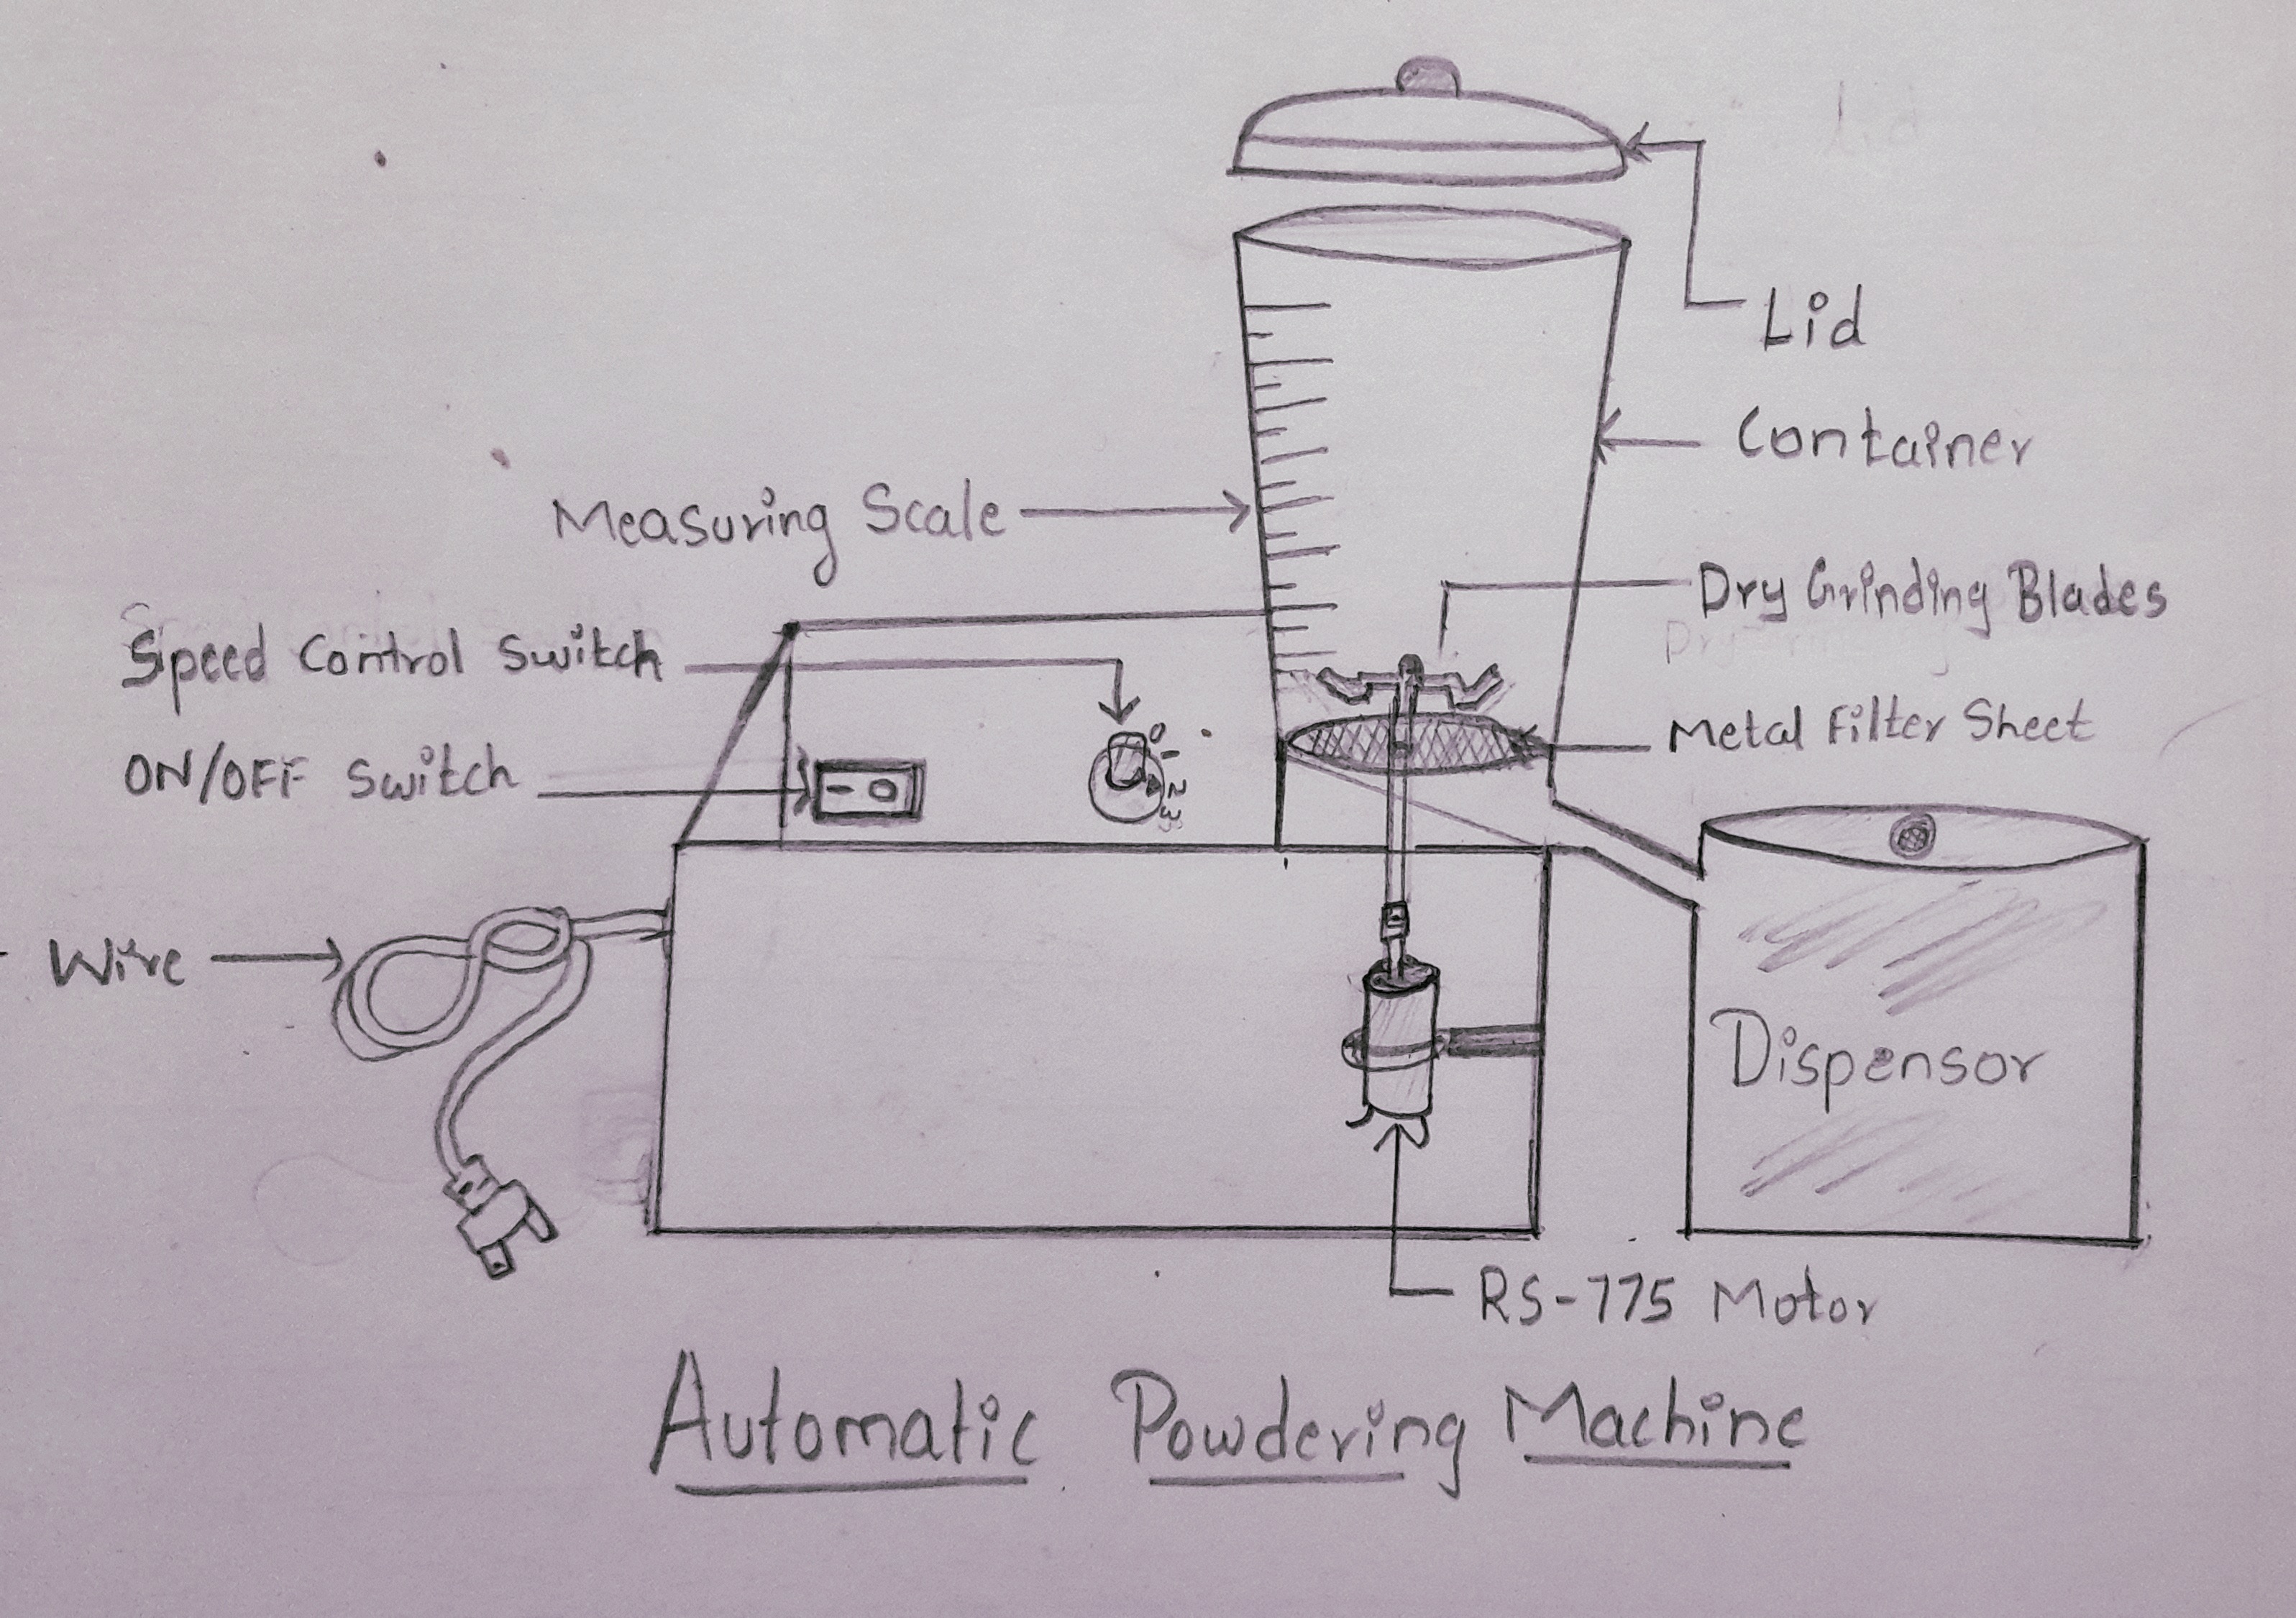 Lid
Container
Measuring Scale
Dry Grinding Blades
Speed Control Switch
Metal Filter Sheet
ON/OFF Switch
0
1
2
3
Wire
Dispensor
RS-775 Motor
Automatic Powdering Machine